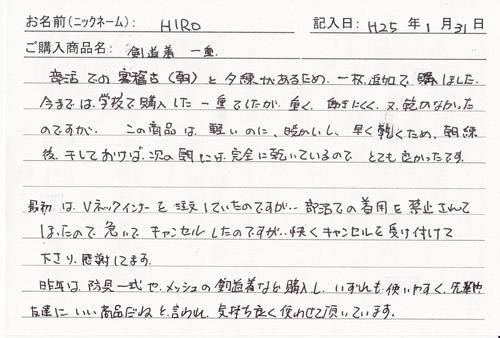 お名前(ニックネーム): HIRO 記入日: H25 年 1 月 31 日
ご購入商品名: 剣道着 一重
部活での寒稽古(朝)と夕練があるため、一枚追加で購入しました。
今までは、学校で購入した一重でしたが、重く、動きにくく、又、乾かなかった
のですが、この商品は、軽いのに、暖かいし、早く乾くため、朝練
後、干しておけば、次の朝には完全に乾いているので とても良かったです。
最初は、Vネックインナーを注文していたのですが… 部活での着用を禁止されて
しまったので 急いで キャンセルしたのですが… 快くキャンセルを受け付けて
下さり、感謝してます。
昨年は、防具一式や、メッシュの剣道着なども購入し、いずれも使いやすく、先輩や
友達に いい商品だねと言われ、気持ち良く使わせて頂いています。